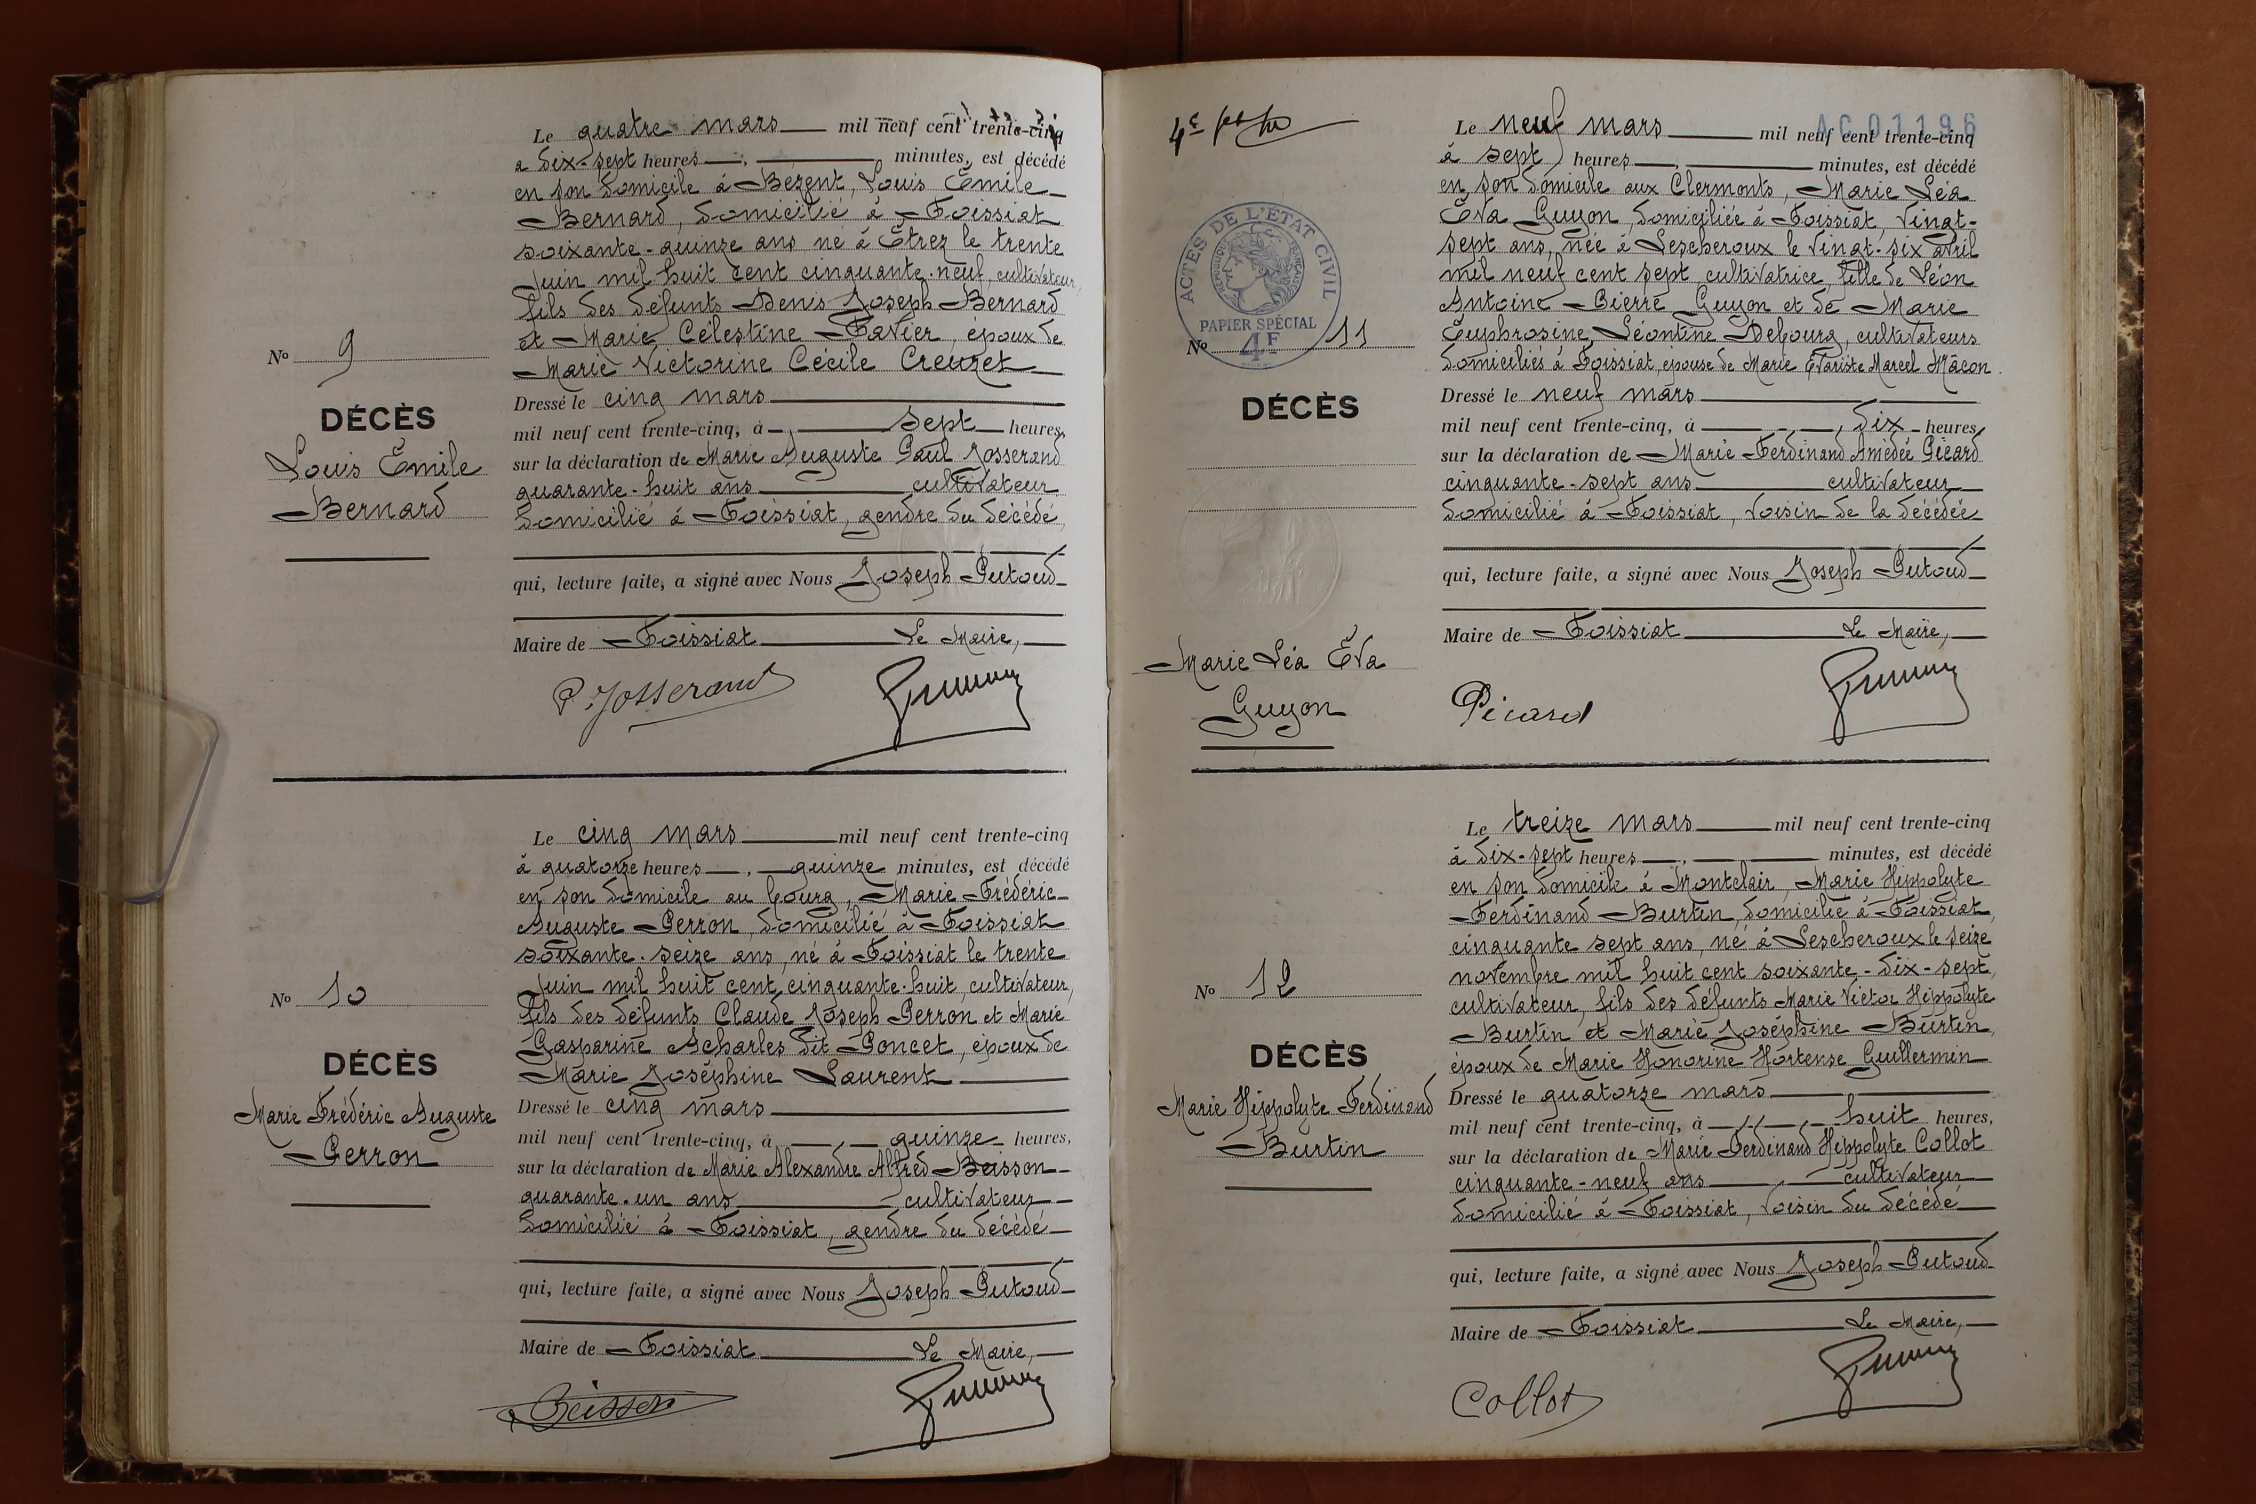 N° 9
DÉCÈS
Louis Emile
Bernard
Le quatre mars mil neuf cent trente-cinq
à dix-sept heures, minutes, est décédé
en son domicile à Bézent, Louis Emile
Bernard, domicilié à Foissiat
soixante-quinze ans né à Étrez le trente
Juin mil huit cent cinquante-neuf, cultivateur,
fils des défunts Denis Joseph Bernard
et Marie Célestine Favier, époux de
Marie Victorine Cécile Creuzet
Dressé le cinq mars
mil neuf cent trente-cinq, à sept heures,
sur la déclaration de Marie Auguste Paul Josserand
quarante-huit ans cultivateur
domicilié à Foissiat, gendre du décédé,
qui, lecture faite, a signé avec Nous Joseph Putoud
Maire de Foissiat Le Maire,
P. Josserand
N° 10
DÉCÈS
Marie Frédéric Auguste
Perron
Le cinq mars mil neuf cent trente-cinq
à quatorze heures, quinze minutes, est décédé
en son domicile au bourg, Marie Frédéric
Auguste Perron, domicilié à Foissiat
soixante-seize ans, né à Foissiat le trente
Juin mil huit cent cinquante-huit, cultivateur,
fils des défunts Claude Joseph Perron et Marie
Gasparine Acharles dit Poncet, époux de
Marie Joséphine Laurent
Dressé le cinq mars
mil neuf cent trente-cinq, à quinze heures,
sur la déclaration de Marie Alexandre Alfred Buisson
quarante-un ans, cultivateur
domicilié à Foissiat, gendre du décédé
qui, lecture faite, a signé avec Nous Joseph Putoud
Maire de Foissiat Le Maire,
Buisson
4e
AC01196
ACTES DE L'ETAT CIVIL
REPUBLIQUE FRANÇAISE
PAPIER SPÉCIAL
4F
N° 11
DÉCÈS
Marie Léa Eva
Guyon
Le neuf mars mil neuf cent trente-cinq
à sept heures, minutes, est décédé
en son domicile aux Clermonts, Marie Léa
Eva Guyon, domiciliée à Foissiat, vingt-
sept ans, née à Lescheroux le vingt-six avril
mil neuf cent sept, cultivatrice, fille de Léon
Antoine Pierre Guyon et de Marie
Euphrosine Léontine Debourg, cultivateurs
domiciliés à Foissiat, épouse de Marie Evariste Marcel Mâcon.
Dressé le neuf mars
mil neuf cent trente-cinq, à, dix heures
sur la déclaration de Marie Ferdinand Amédée Picard
cinquante-sept ans cultivateur
domicilié à Foissiat, voisin de la décédée
qui, lecture faite, a signé avec Nous Joseph Putoud
Maire de Foissiat Le Maire,
Picard
N° 12
DÉCÈS
Marie Hippolyte Ferdinand
Burtin
Le treize mars mil neuf cent trente-cinq
à dix-sept heures, minutes, est décédé
en son domicile à Montclair, Marie Hippolyte
Ferdinand Burtin, domicilié à Foissiat,
cinquante sept ans, né à Lescheroux le seize
novembre mil huit cent soixante-dix-sept,
cultivateur, fils des défunts Marie Victor Hippolyte
Burtin et Marie Joséphine Burtin,
époux de Marie Honorine Hortense Guillermin
Dressé le quatorze mars
mil neuf cent trente-cinq, à huit heures,
sur la déclaration de Marie Ferdinand Hippolyte Collot
cinquante-neuf ans, cultivateur
domicilié à Foissiat, voisin du décédé
qui, lecture faite, a signé avec Nous Joseph Putoud
Maire de Foissiat Le Maire,
Collot